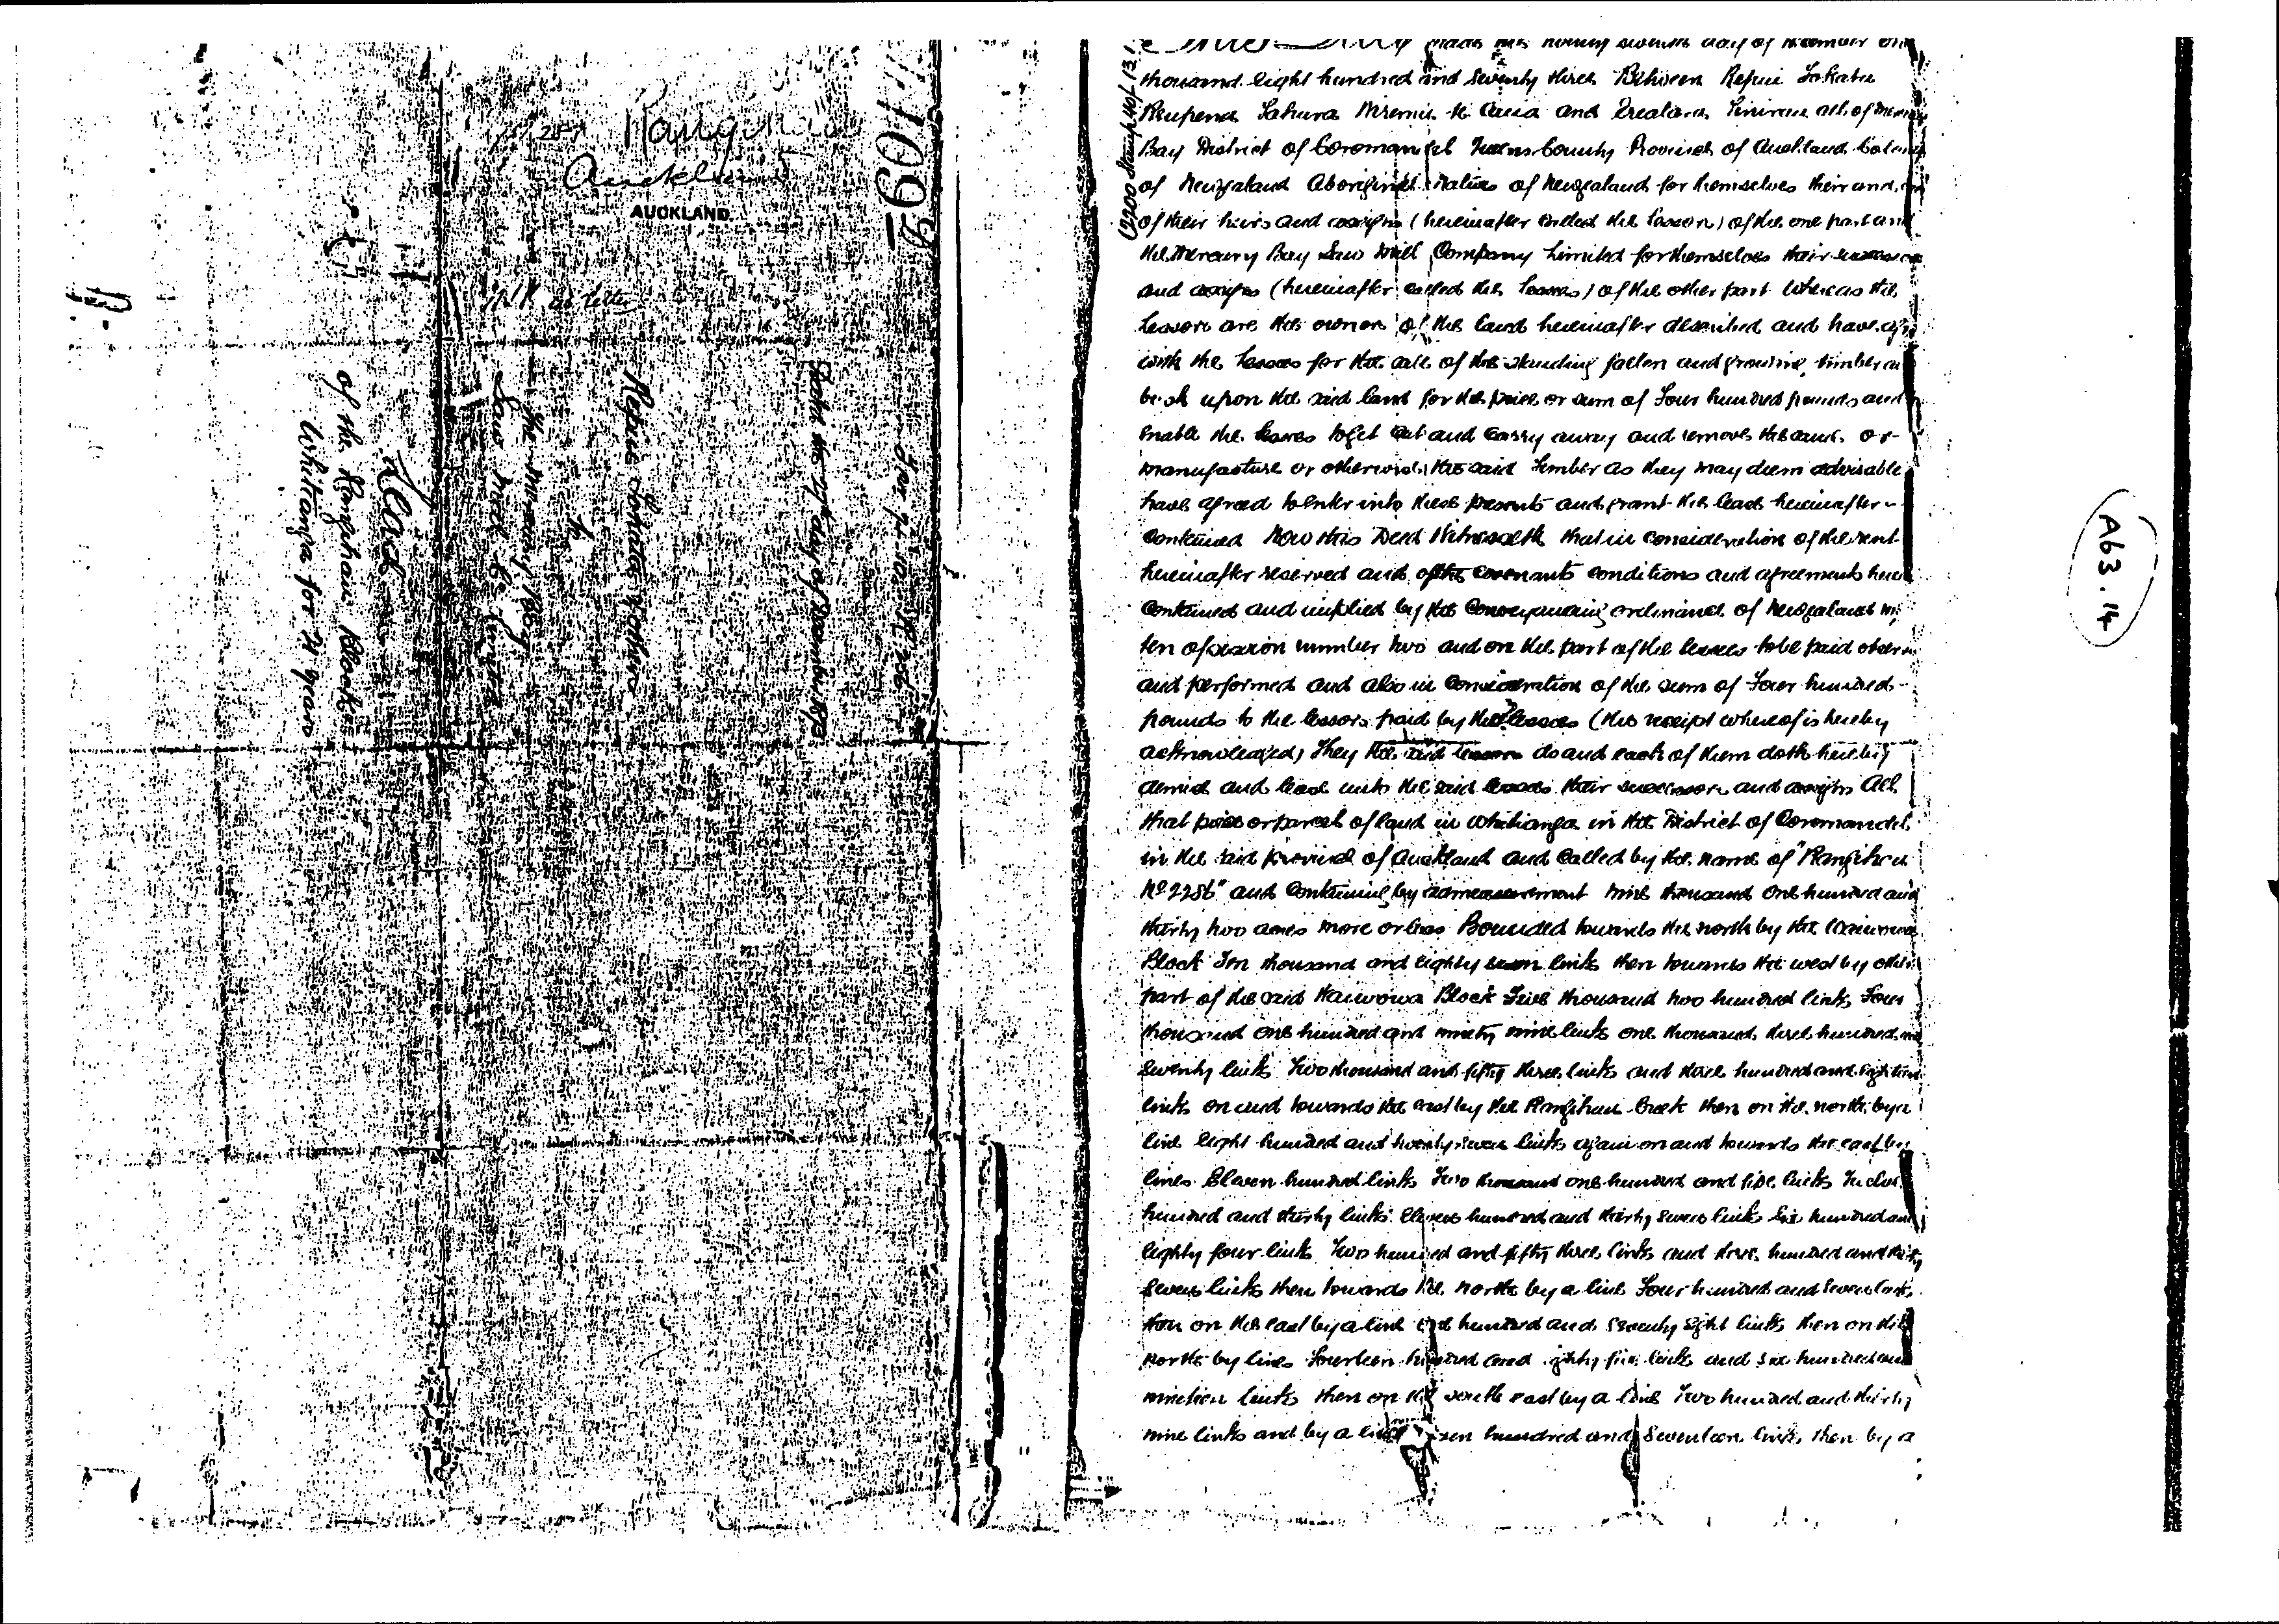 Rangihau
Auckland
AUCKLAND.
1099
Dated the 27th day of December 1873
Repui Tokatu & others
to
The Mercury Bay
Saw Mill Co Limited
Lease
of the Rangihau Block
Whitianga for 21 years
made this twenty seventh day of December one
thousand eight hundred and seventy three Between Repui Tokatu
and all of Mercury
Bay District of Coromandel Queens County Province of Auckland Colony
of Newzealand Aboriginal Natives of Newzealand for themselves their and
of their heirs and assigns (hereinafter called the lessors) of the one part and
the Mercury Bay Saw Mill Company Limited for themselves their successors
and assigns (hereinafter called the lessees) of the other part Whereas the
lessors are the owners of the land hereinafter described and have
with the lessees for the sale of the standing fallen and growing timber
bush upon the said land for the price or sum of Four hundred pounds and
enable the lessees to get cut and carry away and remove the same or
manufacture or otherwise the said timber as they may deem advisable
have agreed to enter into these presents and grant the lease hereinafter
contained Now this Deed Witnesseth that in consideration of the rent
hereinafter reserved and of the covenants conditions and agreements herein
contained and implied by the Conveyancing ordinance of Newzealand
ten of session number two and on the part of the lessees to be paid
and performed and also in consideration of the sum of Four hundred
pounds to the lessors paid by the lessees (the receipt whereof is hereby
acknowledged) They the said lessors do and each of them doth hereby
demise and lease unto the said lessees their successors and assigns All
that piece or parcel of land in Whitianga in the District of Coromandel
in the said province of Auckland and called by the name of "Rangihau
No 228b" and containing by admeasurement nine thousand one hundred and
thirty two acres more or less Bounded towards the north by the
Block Ten thousand and eighty seven links then towards the west by other
part of the said Block Five thousand two hundred links Four
thousand one hundred and ninety nine links one thousand three hundred and
seventy links Two thousand and fifty three links and three hundred and eighteen
links on and towards the east by the Rangihau Creek then on the north by a
line eight hundred and twenty seven links again on and towards the east by
lines Eleven hundred links Two thousand one hundred and five links Twelve
hundred and thirty links Eleven hundred and thirty seven links Six hundred and
eighty four links Two hundred and fifty three links and three hundred and
seven links then towards the north by a line Four hundred and seven links
then on the east by a line hundred and seventy eight links then on the
north by lines Fourteen hundred and eighty five links and six hundred and
nineteen links then on the south east by a line Two hundred and thirty
nine links and by a line hundred and seventeen links then by a
Ab3.14